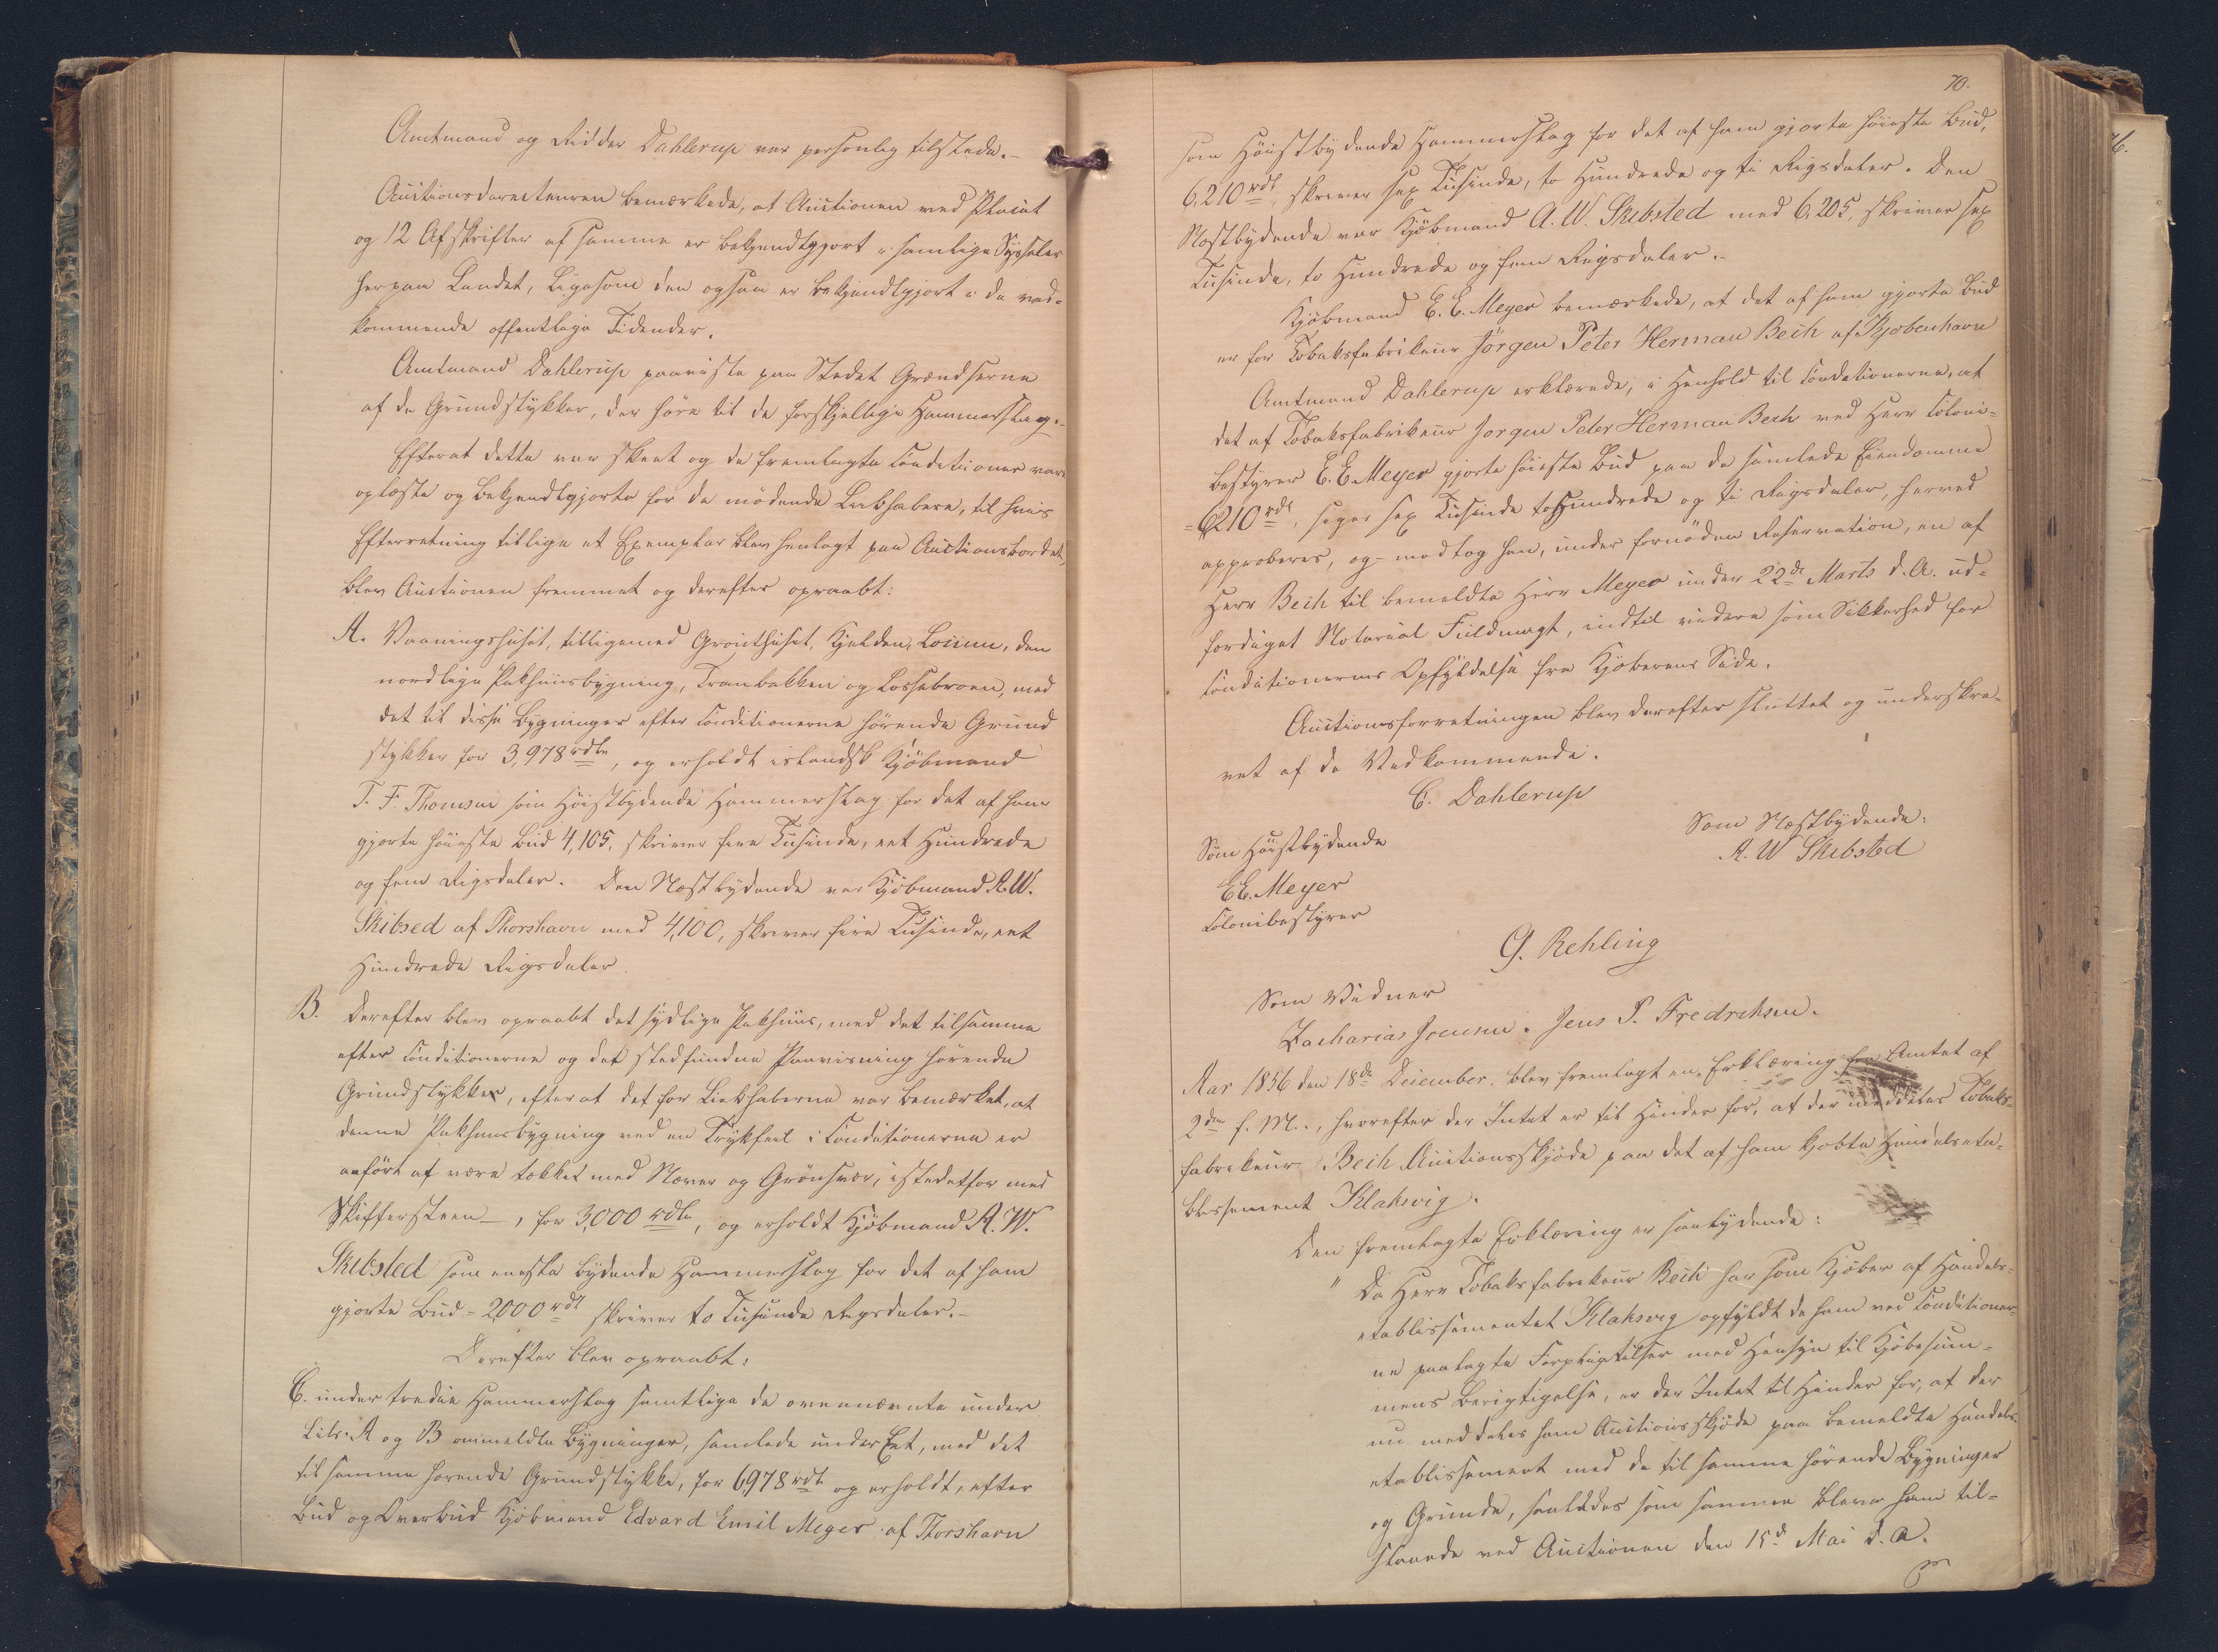 Amtmand og Ridder Dahlerup var personlig tilstede.-
Auctionsdirecteuren bemærkede, at Auctionen ved Placat
og 12 Afskrifter af samme er bekjendtgjort i samtlige Sysseler
her paa Landet, ligesom den ogsaa er bekjendtgjort i de ved-
kommende offentlige Tidender.
Amtmand Dahlerup paaviste paa Stedet Grændserne
af de Grundstykker, der høre til de forskjellige Hammerslag.-
Efterat dette var skeet og de fremlagte Conditioner vare
oplæste og bekjendtgjorte for de mødende Liebhabere, til hvis
Efterretning tillige et Exemplar blev henlagt paa Auctionsbordet,
blev Auctionen fremmet og derefter opraabt:
A. Vaaningshuset, tilligemed Grønthuset, Kjelden, Loiien, den
nordlige Pakhuusbygning, Tranbakken og Lossebroen, med
det til disse Bygninger efter Conditionerne hørende Grund
stykker for 3,978 rdlr, og erholdt islandsk Kjöbmand
T. F. Thomsen som Høistbydende Hammerslag for det af ham
gjorte høieste Bud 4,105, skriver fire Tusinde, eet Hundrede
og fem Rigsdaler. Den Næstbydende var Kjöbmand A. W.
Skibsed af Thorshavn med 4,100, skriver fire Tusinde, eet
Hundrede Rigsdaler.
B. Derefter blev opraabt det sydlige Pakhuus, med det tilsamme
efter Conditionerne og det stedfundne Paavisning hørende
Grundstykker, efter at det for Liebhaberne var bemærket, at
denne Pakhuusbygning ved en Trykfeil i Conditionerne er
anført at være tækket med Næver og Grønsvær, istedetfor med
Skiffersteen -, for 3,000 rdlr, og erholdt Kjöbmand A. W.
Skibsted som eneste bydende Hammerslag for det af ham
gjorte Bud = 2,000 rdl skriver to Tusinde Rigsdaler.-
Derefter blev opraabt:
C. under tredie Hammerslag samtlige de ovennævnte under
Litr. A og B ommeldte Bygninger, samlede under Eet, med det
til samme hørende Grundstykke, for 6978 rdl og erholdt, efter
Bud og Overbud Kjöbmand Edvard Emil Meyer af Thorshavn
70.
som Høistbydende Hammerslag for det af ham gjorte høieste Bud,
6,210 rdl, skriver sex Tusinde, to Hundrede og ti Rigsdaler. Den
Næstbydende var Kjöbmand A. W. Skibsted med 6,205, skriver sex
Tusinde, to Hundrede og fem Rigsdaler.-
Kjöbmand E. E. Meyer bemærkede, at det af ham gjorte Bud
er for Tobaksfabrikeur Jörgen Peter Herman Bech af Kjøbenhavn
Amtmand Dahlerup erklærede, i Henhold til Conditionerne, at
det af Tobaksfabrikeur Jorgen Peter Herman Bech ved Herr Coloni-
bestyrer E. E. Meyer gjorte høieste Bud paa de samlede Eiendomme
= 6210 rdl, siger sex Tusinde to Hundrede og ti Rigsdaler, herved
approberes, og modtog han, under fornøden Reservation, en af
Herr Bech til bemeldte Herr Meyer under 22de Marts d. A. ud-
færdiget Notarial Fuldmagt, indtil videre som Sikkerhed for
Conditionernes Opfyldelse fra Kjøberens Side.
Auctionsforretningen blev derefter sluttet og underskre-
vet af de Vedkommende.
C. Dahlerup
Som Høistbydende
E E. Meyer
Colonibestyrer
Som Næstbydende:
A. W Skibsted
G. Rehling
Som Vidner
Zacharias Joensen. Jens P. Fredrchsen.
Aar 1856 den 18de December, blev fremlagt en Erklæring fra Amtet af
2den f. M., hvorefter der Intet er til Hinder for, at der meddeles Tobaks-
fabrikeur Bech Auctionsskjøde paa det af ham kjøbte Handelseta-
blissement Klaksvig.
Den fremlagte Erklæring er saalydende:
" Da Herr Tobaksfabrikeur Bech har som Kjøber af Handels-
etablissementet Klaksvig opfyldt de ham ved Conditioner-
ne paalagte Forpligtelser med Hensyn til Kjøbesum-
mens Berigtigelse, er der Intet til Hinder for, at der
nu meddeles ham Auctionsskjøde paa bemeldte Handels-
etablissement med de til samme hørende Bygninger
og Grunde, saaledes som samme bleve ham til-
slaaede ved Auctionen den 15de Mai d. A.